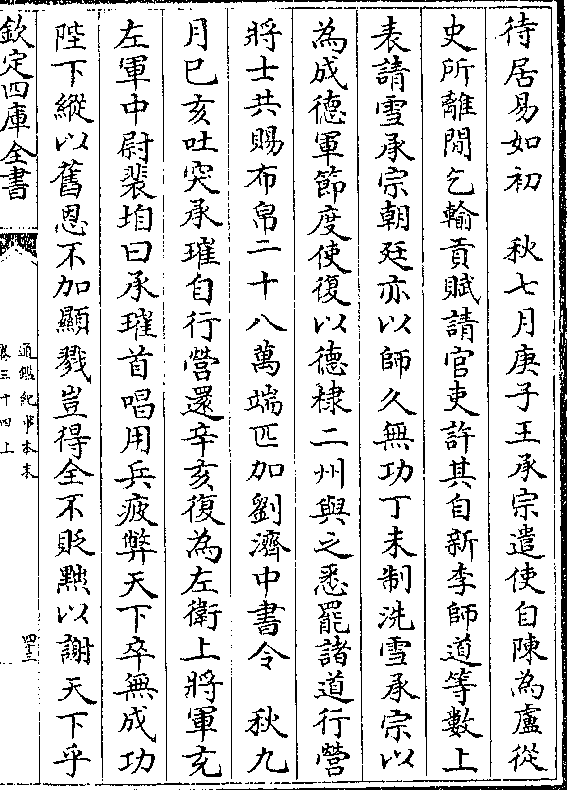 待居易如初　秋七月庚子王承宗遣使自陳為盧從
史所離間乞輸貢賦請官吏許其自新李師道等數上
表請雪承宗朝廷亦以師久無功丁未制洗雪承宗以
為成德軍節度使復以德棣二州與之悉罷諸道行營
將士共賜布帛二十八萬端匹加劉濟中書令　秋九
月己亥吐突承璀自行營還辛亥復為左衛上將軍充
左軍中尉裴垍曰承璀首唱用兵疲弊天下卒無成功
陛下縱以舊恩不加顯戮豈得全不貶黜以謝天下乎
欽定四庫全書
通鑑紀事本末
卷三十四上
四三